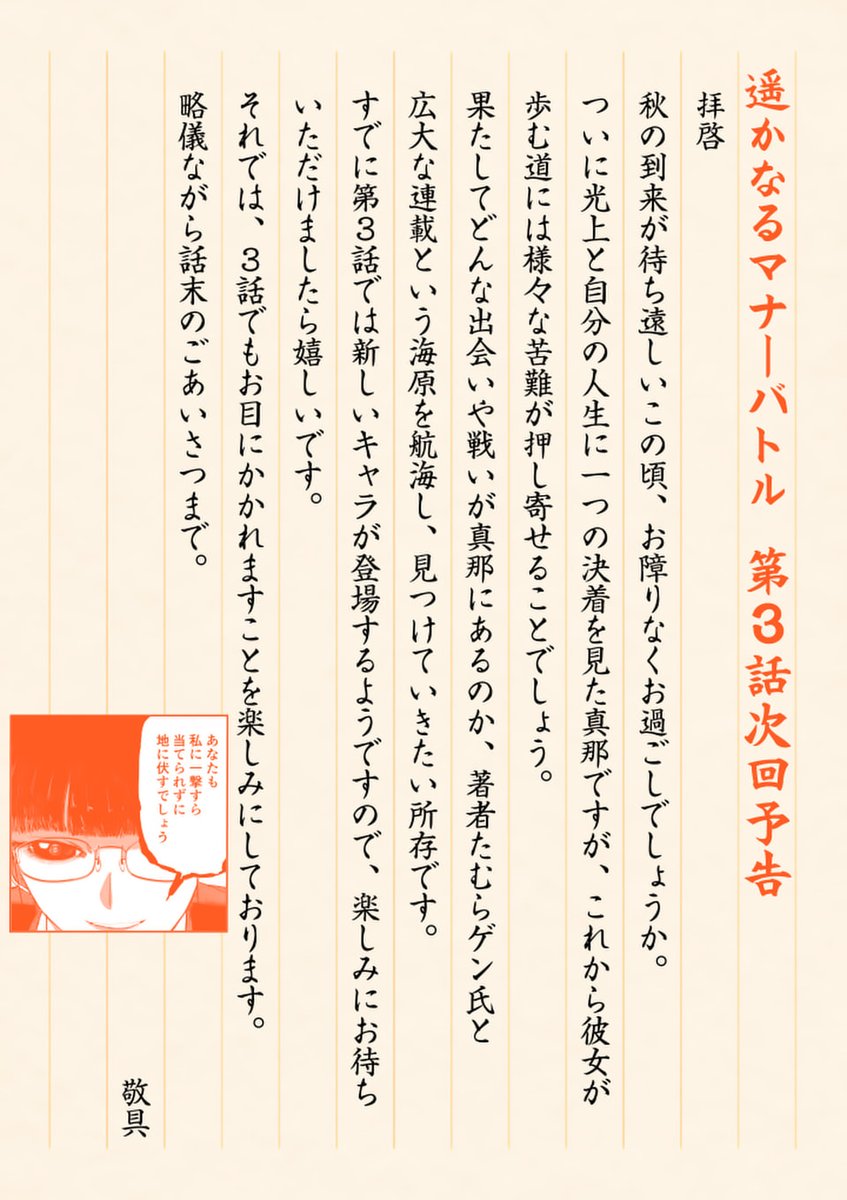 遥かなるマナーバトル　第３話次回予告
拝啓
秋の到来が待ち遠しいこの頃、お障りなくお過ごしでしょうか。
ついに光上と自分の人生に一つの決着を見た真那ですが、これから彼女が
歩む道には様々な苦難が押し寄せることでしょう。
果たしてどんな出会いや戦いが真那にあるのか、著者たむらゲン氏と
広大な連載という海原を航海し、見つけていきたい所存です。
すでに第３話では新しいキャラが登場するようですので、楽しみにお待ち
いただけましたら嬉しいです。
それでは、３話でもお目にかかれますことを楽しみにしております。
略儀ながら話末のごあいさつまで。
敬具
あなたも
私に一撃すら
当てられずに
地に伏すでしょう